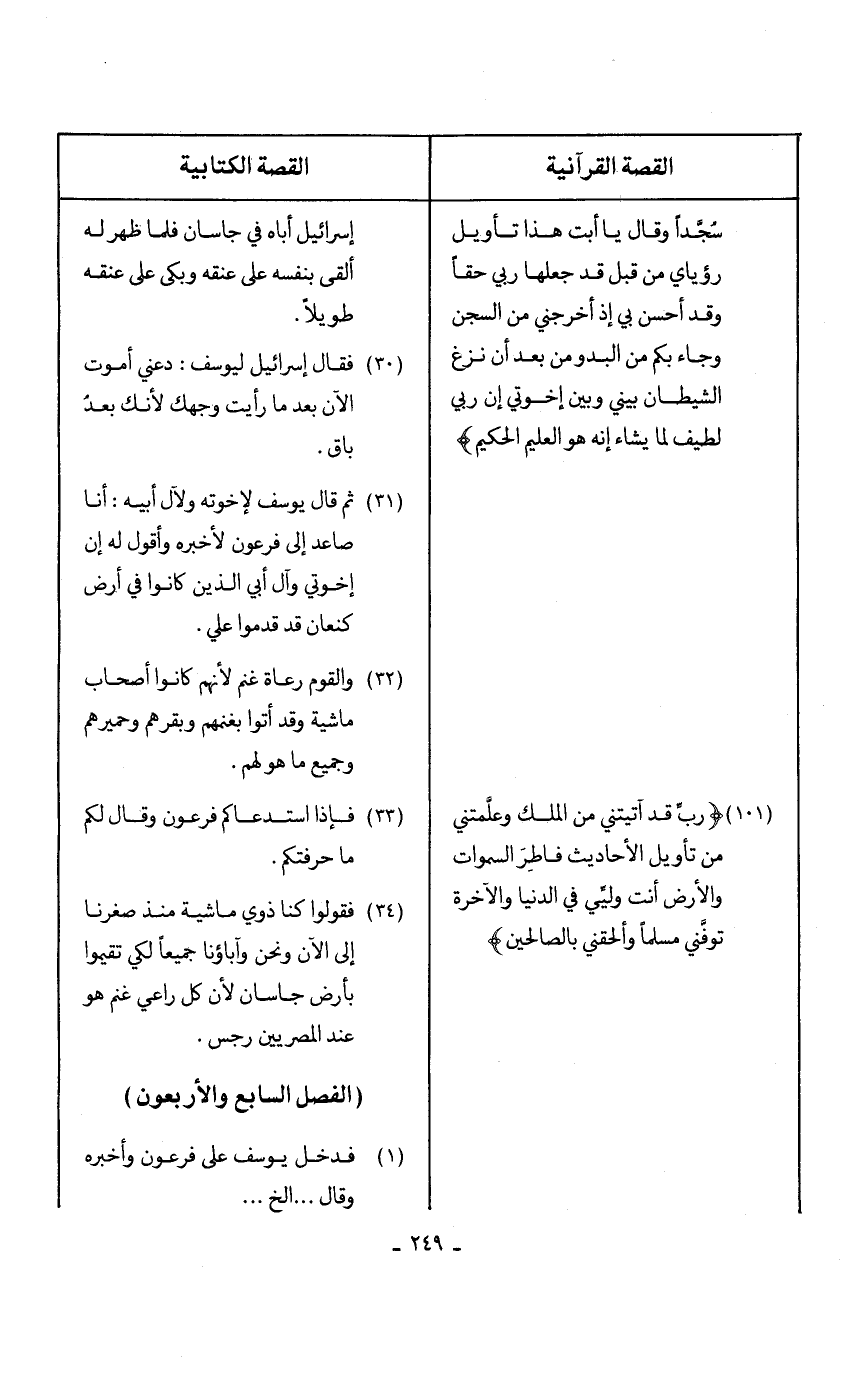 القصة القرآنية
سُجَّداً وقال يا أبت هذا تأويل
رؤياي من قبل قد جعلها ربي حقاً
وقد أحسن بي إذ أخرجني من السجن
وجاء بكم من البدو من بعد أن نزغ
الشيطان بيني وبين إخوتي إن ربي
لطيف لما يشاء إنه هو العليم الحكيم﴾
(١٠١) ﴿ربِّ قد آتيتني من الملك وعلَّمتني
من تأويل الأحاديث فاطِرَ السموات
والأرض أنت وليِّي في الدنيا والآخرة
توفَّني مسلماً وألحقني بالصالحين﴾
القصة الكتابية
إسرائيل أباه في جاسان فلما ظهر له
ألقى بنفسه على عنقه وبكى على عنقه
طويلاً .
(٣٠) فقال إسرائيل ليوسف : دعني أموت
الآن بعد ما رأيت وجهك لأنك بعدُ
باق .
(٣١) ثم قال يوسف لإخوته ولآل أبيه : أنا
صاعد إلى فرعون لأخبره وأقول له إن
إخوتي وآل أبي الذين كانوا في أرض
كنعان قد قدموا علي .
(٣٢) والقوم رعاة غنم لأنهم كانوا أصحاب
ماشية وقد أتوا بغنمهم وبقرهم وحميرهم
وجميع ما هو لهم .
(٣٣) فإذا استدعاكم فرعون وقال لكم
ما حرفتكم .
(٣٤) فقولوا كنا ذوي ماشية منذ صغرنا
إلى الآن ونحن وآباؤنا جميعاً لكي تقيموا
بأرض جاسان لأن كل راعي غنم هو
عند المصريين رجس .
(الفصل السابع والأربعون)
(١) فدخل يوسف على فرعون وأخبره
وقال ...الخ ...
ـ ٢٤٩ ـ